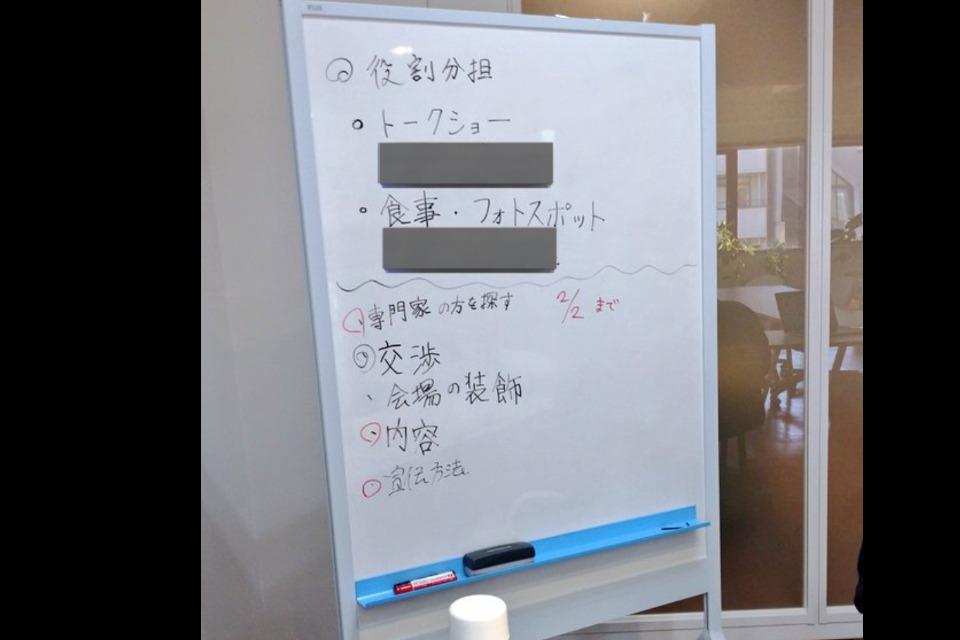 PLUS
◎ 役割分担
○ トークショー
○ 食事・フォトスポット
専門家の方を探す 2/2 まで
◎交渉
・会場の装飾
・内容
・宣伝方法